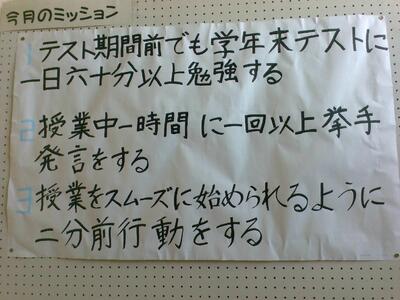 今月のミッション
テスト期間前でも学年末テストに
一日六十分以上勉強する
授業中一時間に一回以上挙手
発言をする
授業をスムーズに始められるように
二分前行動をする